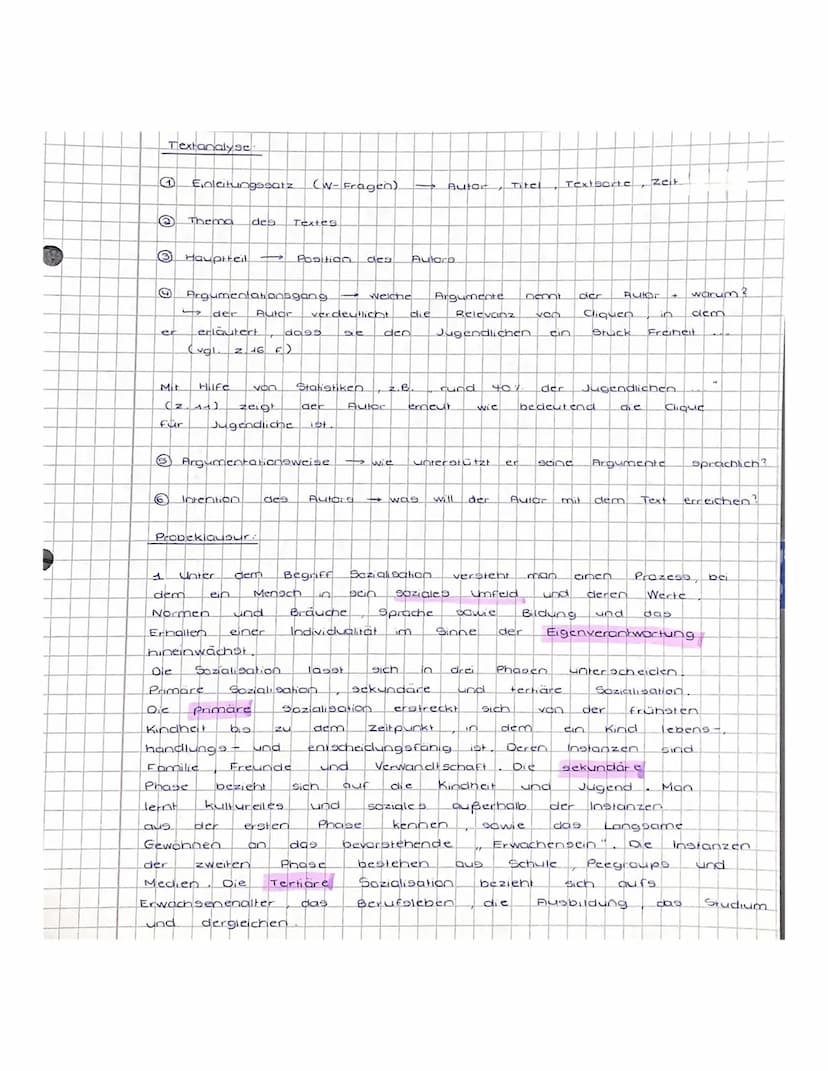 Textanalyse:
① Einleitungssatz (W-Fragen) → Autor, Titel, Textsorte, Zeit
② Thema des Textes
③ Hauptteil → Position des Autors
④ Argumentationsgang → welche Argumente nennt der Autor + warum?
↳ der Autor verdeutlicht die Relevanz von Cliquen, in dem
er erläutert, dass sie den Jugendlichen ein Stück Freiheit ...
(vgl. Z.16 f)
Mit Hilfe von Statistiken, z.B. „rund 40% der Jugendlichen ..."
(Z.11) zeigt der Autor erneut wie bedeutend die Clique
für Jugendliche ist.
⑤ Argumentationsweise → wie unterstützt er seine Argumente sprachlich?
⑥ Intention des Autors → was will der Autor mit dem Text erreichen?
Probeklausur:
1 Unter dem Begriff Sozialisation versteht man einen Prozess, bei
dem ein Mensch in sein soziales Umfeld und deren Werte,
Normen und Bräuche, Sprache sowie Bildung und das
Erhalten einer Individualität im Sinne der Eigenverantwortung
hineinwächst.
Die Sozialisation lässt sich in drei Phasen unterscheiden.
Primäre Sozialisation, sekundäre und tertiäre Sozialisation.
Die primäre Sozialisation erstreckt sich von der frühsten
Kindheit bis zu dem Zeitpunkt, in dem ein Kind lebens-,
handlungs- und entscheidungsfähig ist. Deren Instanzen sind
Familie, Freunde und Verwandtschaft. Die sekundäre
Phase bezieht sich auf die Kindheit und Jugend. Man
lernt kulturelles und soziales außerhalb der Instanzen
aus der ersten Phase kennen, sowie das Langsame
Gewöhnen an das bevorstehende „Erwachensein". Die Instanzen
der zweiten Phase bestehen aus Schule, Peegroups und
Medien. Die Tertiäre Sozialisation bezieht sich aufs
Erwachsenenalter, das Berufsleben, die Ausbildung, das Studium
und dergleichen.